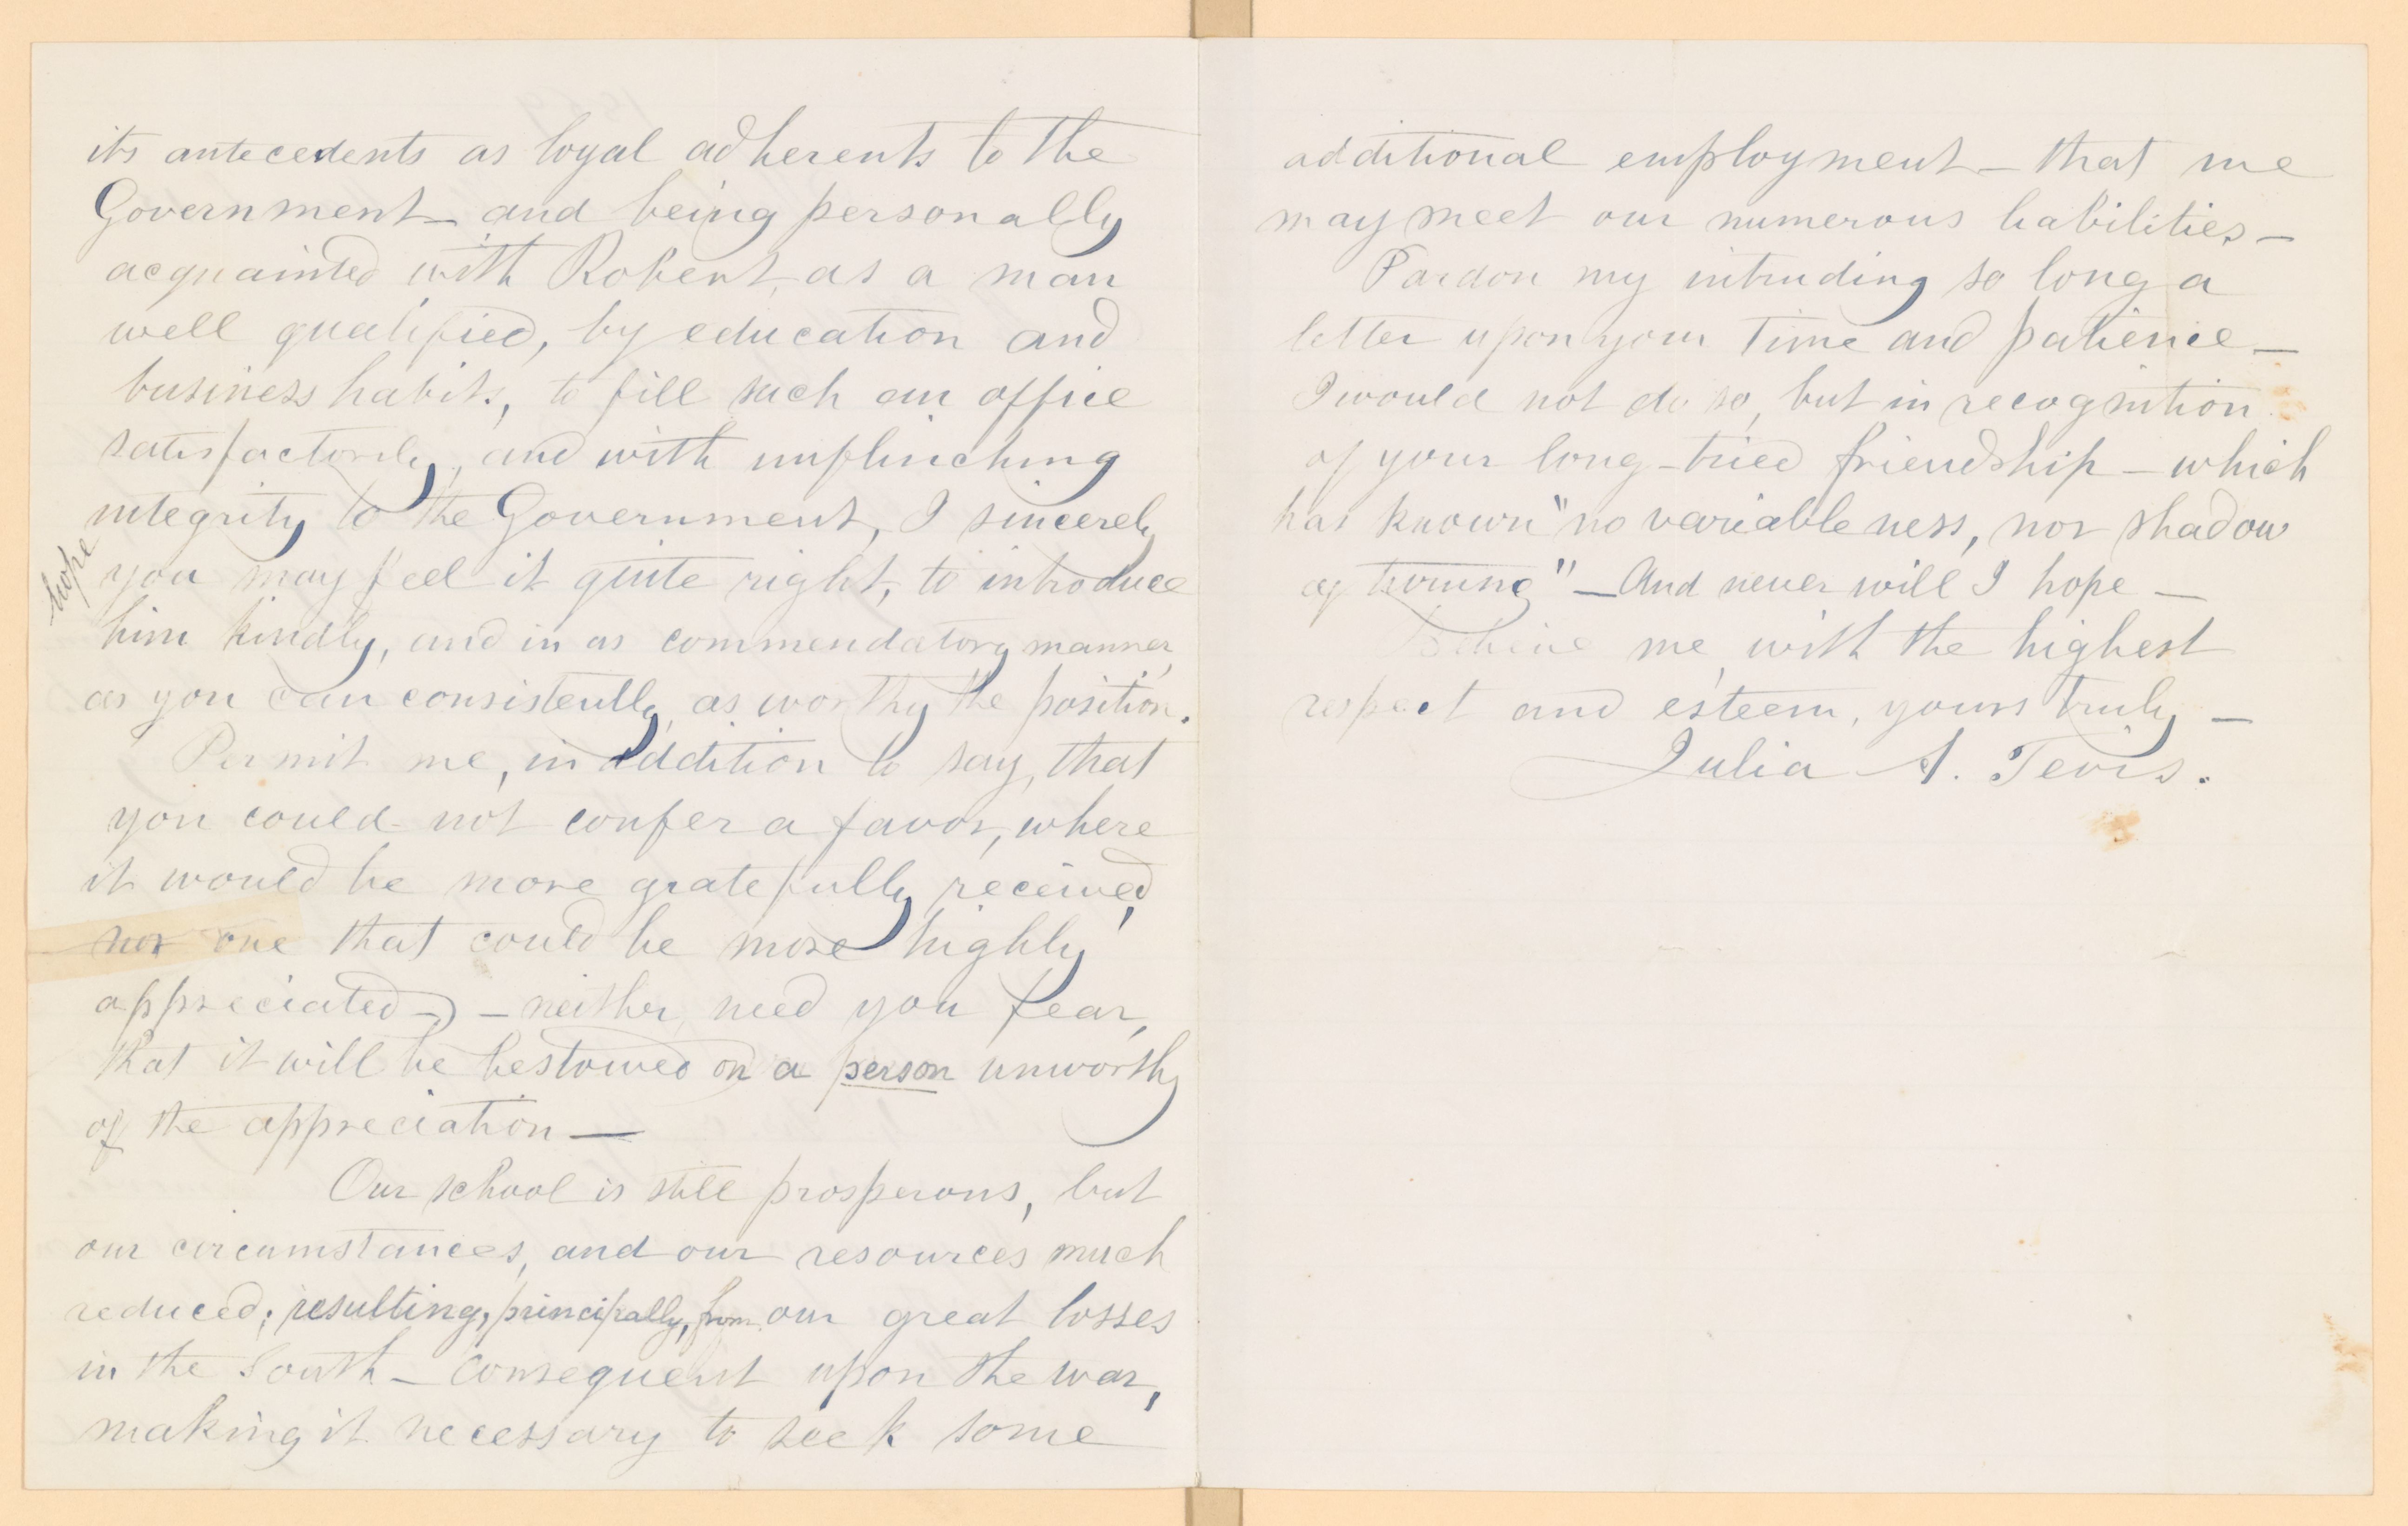 its antecedents as loyal adherents to the
Government – and being personally
acquainted with Robert, as a man
well qualified, by education and
business habits, to fill such an office
satisfactorily, and with unflinching
integrity to the Government, I sincerely
hope
you may feel it quite right, to introduce
him kindly, and in as commendatory manner,
as you can consistently, as worthy the position.
Permit me, in addition to say, that
you could not confer a favor, where
it would be more gratefully received,
nor one that could be more highly
appreciated – neither need you fear,
that it will be bestowed on a person unworthy
of the appreciation —
Our school is still prosperous, but
our circumstances, and our resources much
reduced; resulting, principally, from our great losses
in the South – consequent upon the war,
making it necessary to seek some
additional employment – that we
may meet our numerous liabilities –
Pardon my intruding so long a
letter upon your time and patience –
I would not do so, but in recognition
of your long-tried friendship – which
has known "no variableness, nor shadow
of turning" – And never will I hope –
Believe me, with the highest
respect and esteem, yours truly –
Julia A. Tevis.